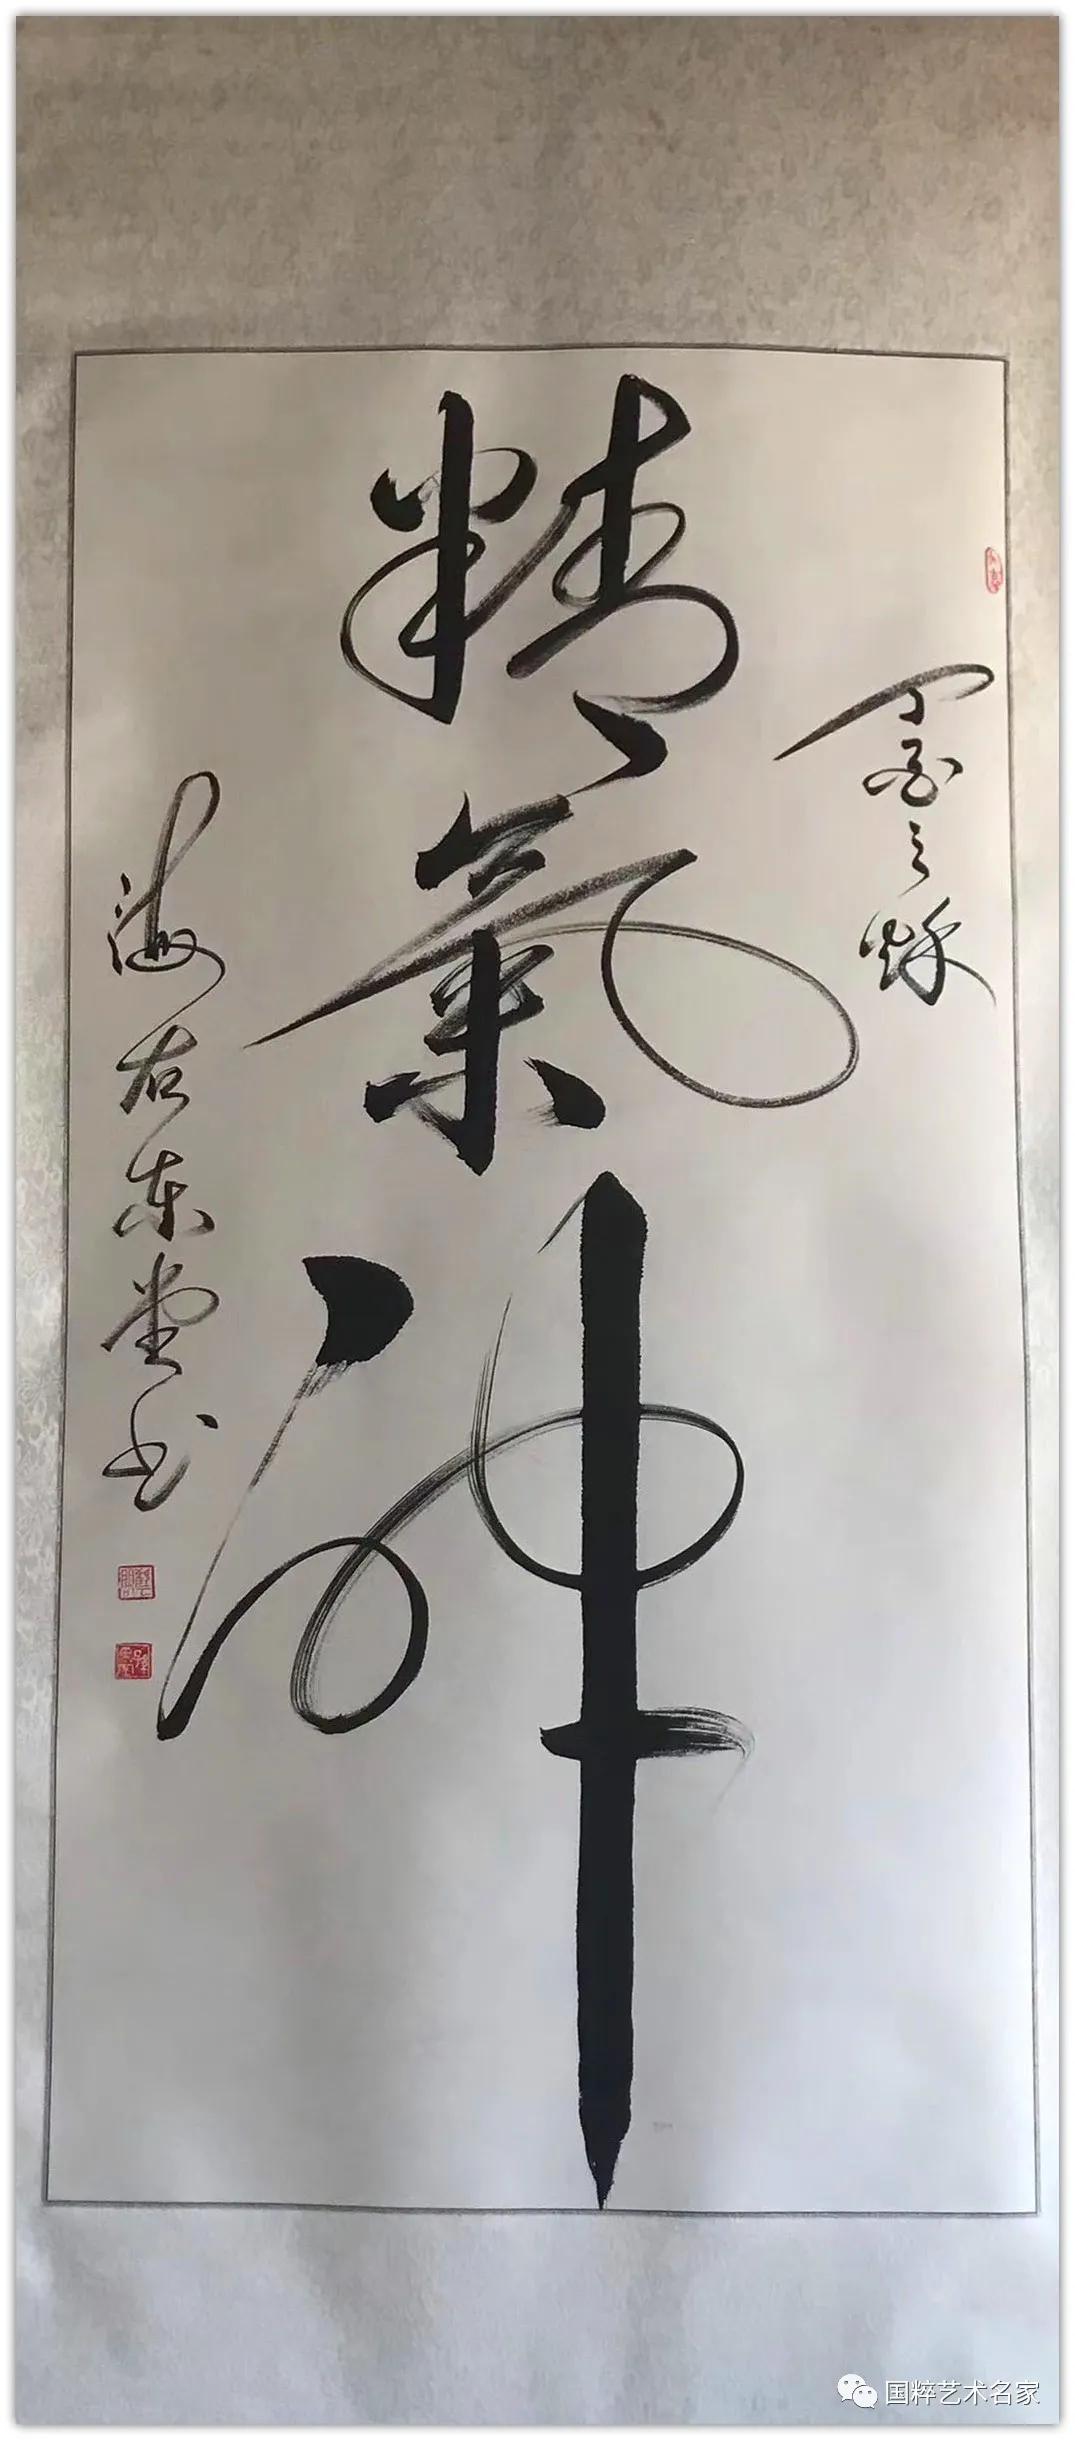 丁酉之秋
精氣神
海右東堂书
国粹艺术名家